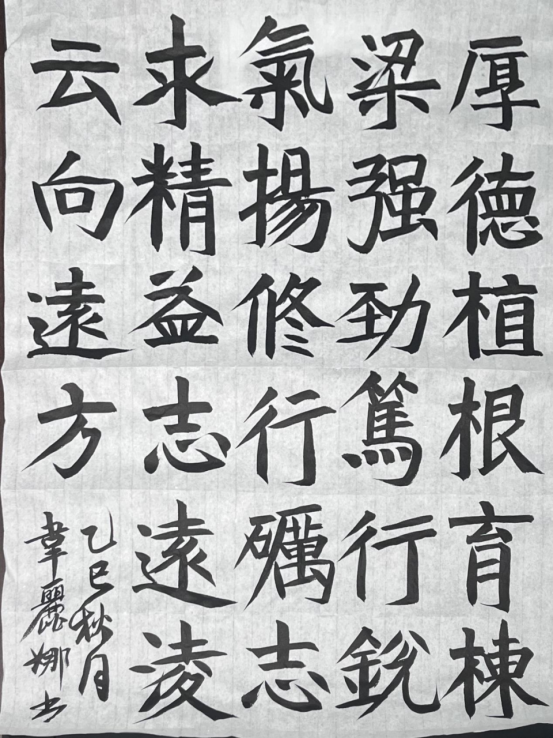 厚德植根育棟
梁强勁篤行銳
氣揚修行礪志
求精益志遠淩
云向遠方
乙巳秋月
韋麗娜书